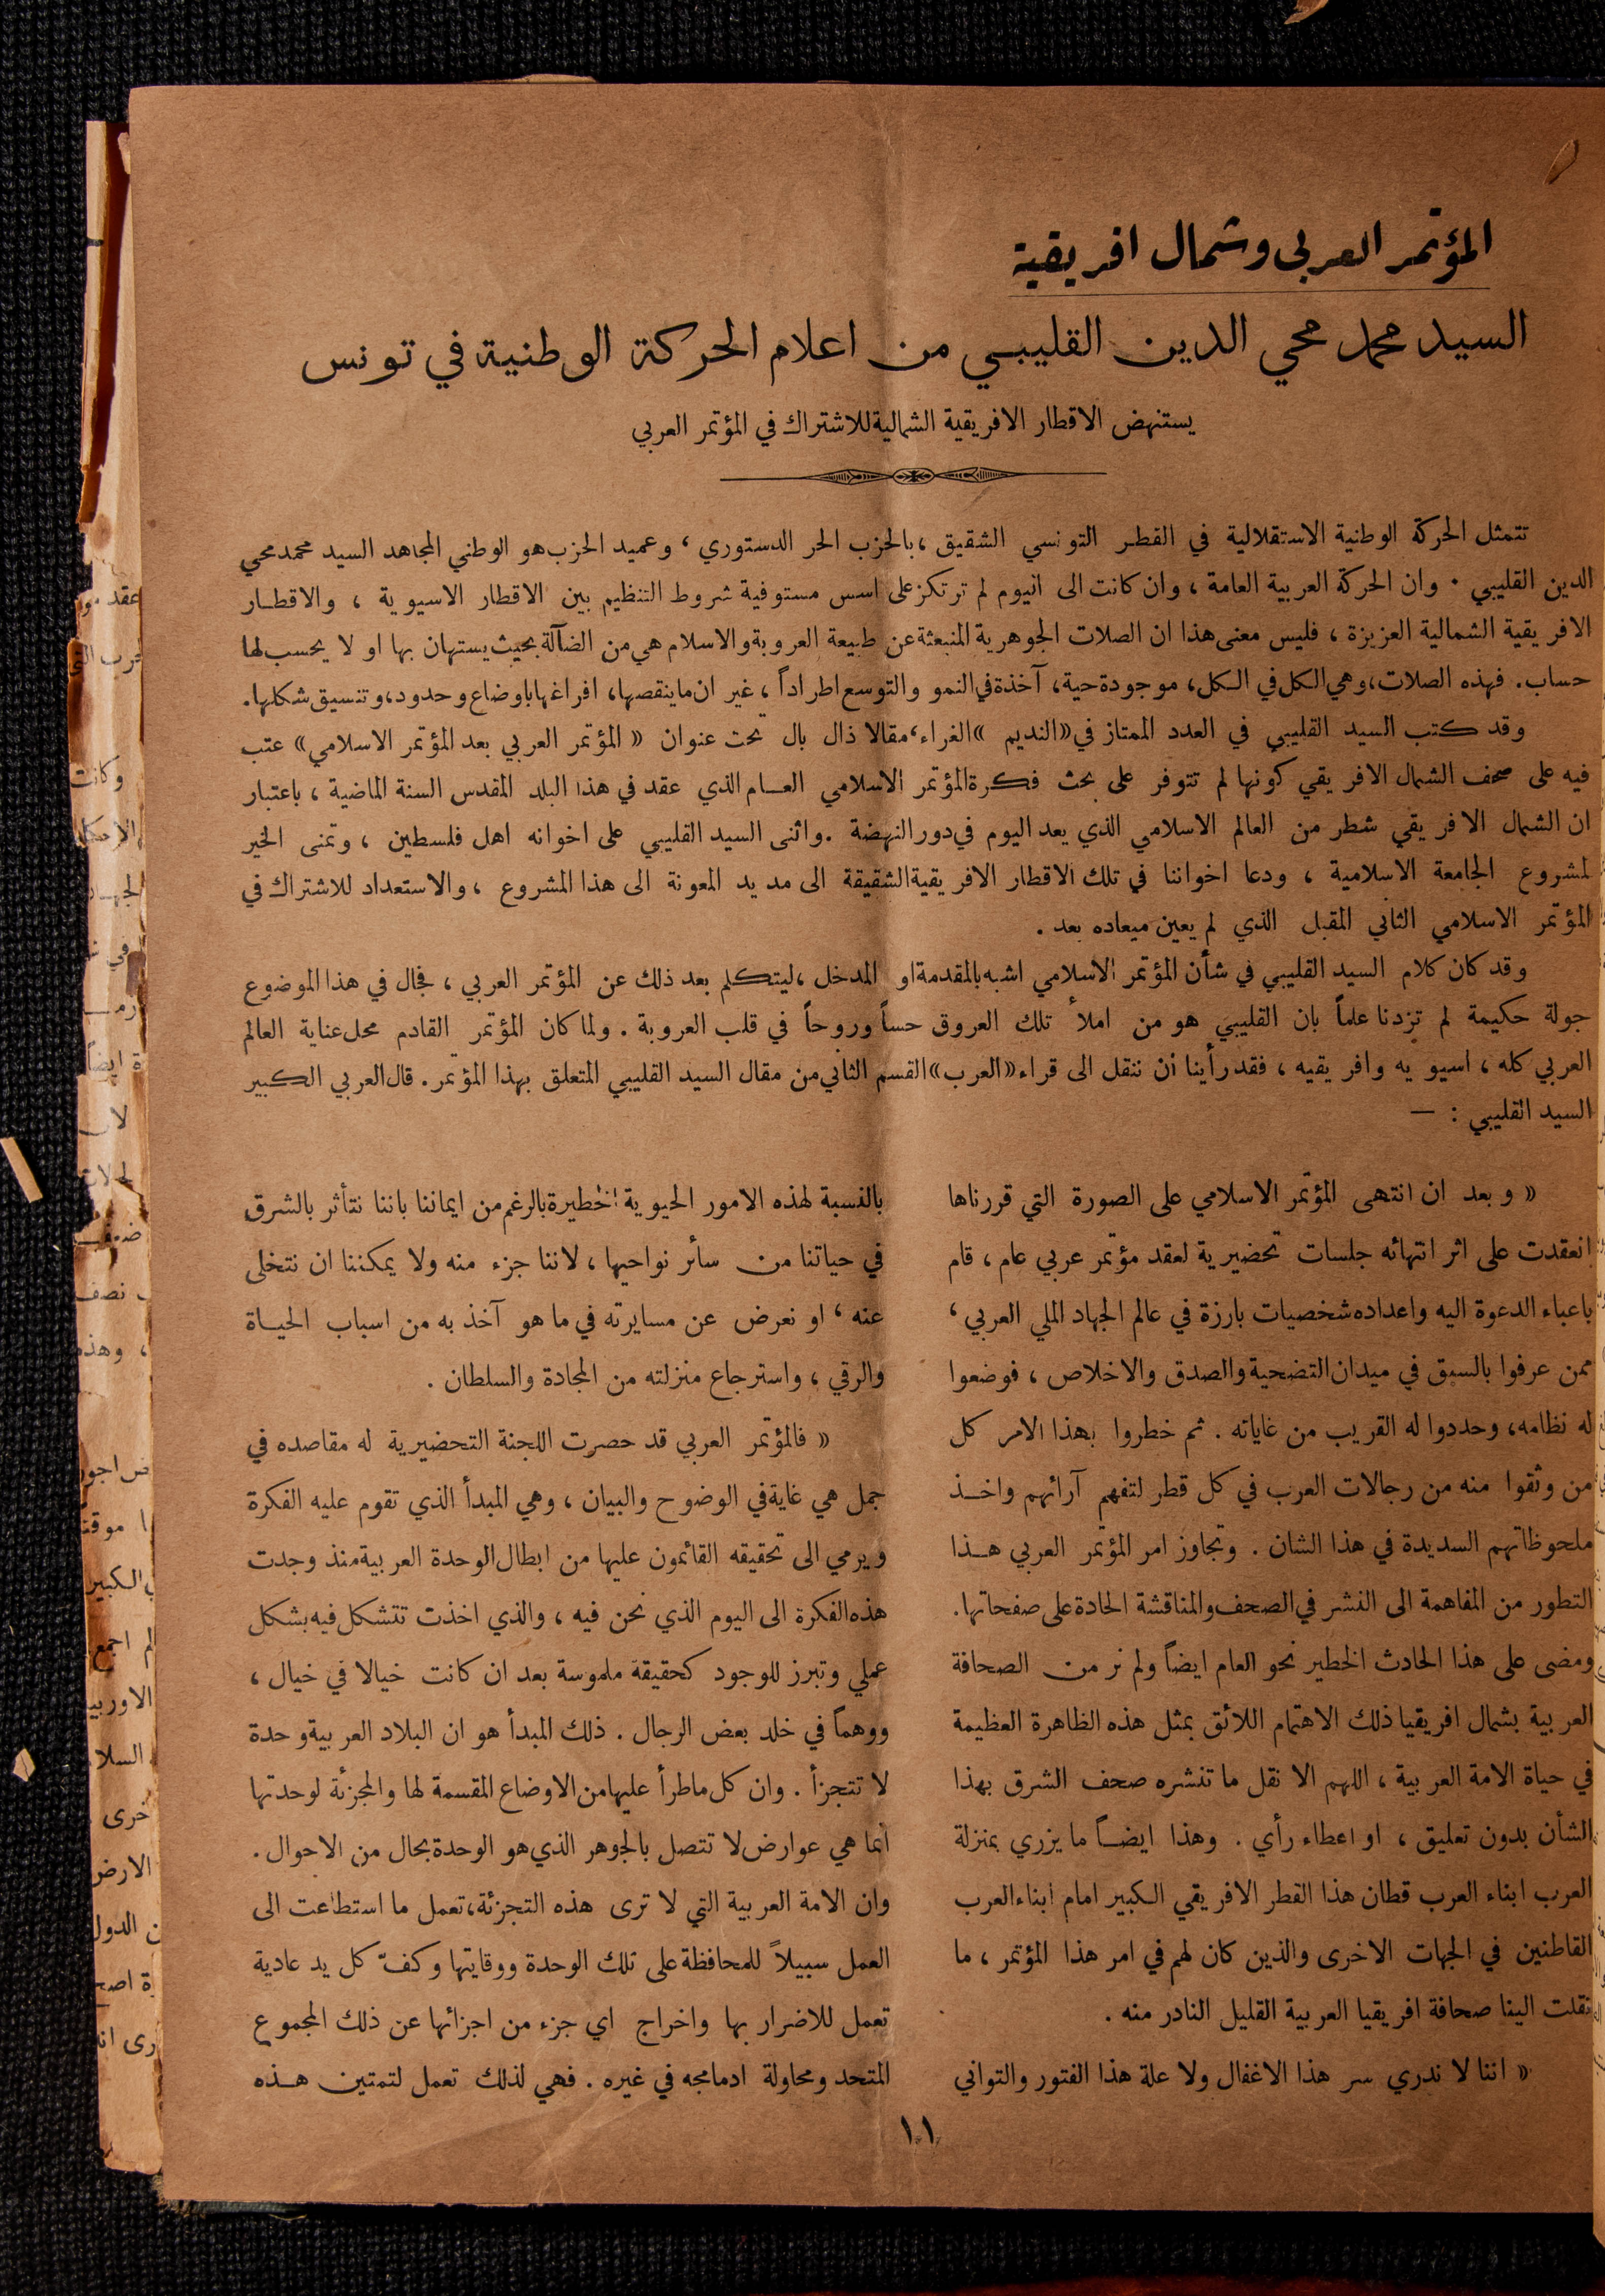 المؤتمر العربي وشمال افريقية
السيد محمد محي الدين القليبي من اعلام الحركة الوطنية في تونس
يستنهض الاقطار الافريقية الشمالية للاشتراك في المؤتمر العربي
تتمثل الحركة الوطنية الاستقلالية في القطر التونسي الشقيق ، بالحزب الحر الدستوري ، وعميد الحزب هو الوطني المجاهد السيد محمد محي
الدين القليبي . وان الحركة العربية العامة ، وان كانت الى اليوم لم ترتكز على اسس مستوفية شروط التنظيم بين الاقطار الاسيوية ، والاقطار
الافريقية الشمالية العزيزة ، فليس معنى هذا ان الصلات الجوهرية المنبعثة عن طبيعة العروبة والاسلام هي من الضآلة بحيث يستهان بها او لا يحسب لها
حساب . فهذه الصلات ، وهي الكل في الكل ، موجودة حية ، آخذة في النمو والتوسع اطراداً ، غير ان ما ينقصها ، افراغها باوضاع وحدود ، وتنسيق شكلها .
وقد كتب السيد القليبي في العدد الممتاز في « النديم » الغراء ، مقالا ذال بال تحت عنوان « المؤتمر العربي بعد المؤتمر الاسلامي » عتب
فيه على صحف الشمال الافريقي كونها لم تتوفر على بحث فكرة المؤتمر الاسلامي العام الذي عقد في هذا البلد المقدس السنة الماضية ، باعتبار
ان الشمال الافريقي شطر من العالم الاسلامي الذي يعد اليوم في دور النهضة . واثنى السيد القليبي على اخوانه اهل فلسطين ، وتمنى الخير
لمشروع الجامعة الاسلامية ، ودعا اخواننا في تلك الاقطار الافريقية الشقيقة الى مد يد المعونة الى هذا المشروع ، والاستعداد للاشتراك في
المؤتمر الاسلامي الثاني المقبل الذي لم يعين ميعاده بعد .
وقد كان كلام السيد القليبي في شأن المؤتمر الاسلامي اشبه بالمقدمة او المدخل ، ليتكلم بعد ذلك عن المؤتمر العربي ، فجال في هذا الموضوع
جولة حكيمة لم تزدنا علماً بان القليبي هو من املأ تلك العروق حساً وروحاً في قلب العروبة . ولما كان المؤتمر القادم محل عناية العالم
العربي كله ، اسيويه وافريقيه ، فقد رأينا ان ننقل الى قراء « العرب » القسم الثاني من مقال السيد القليبي المتعلق بهذا المؤتمر . قال العربي الكبير
السيد القليبي : —
« وبعد ان انتهى المؤتمر الاسلامي على الصورة التي قررناها
انعقدت على اثر انتهائه جلسات تحضيرية لعقد مؤتمر عربي عام ، قام
باعباء الدعوة اليه واعداده شخصيات بارزة في عالم الجهاد الملي العربي ،
ممن عرفوا بالسبق في ميدان التضحية والصدق والاخلاص ، فوضعوا
له نظامه ، وحددوا له القريب من غاياته . ثم خطروا بهذا الامر كل
من وثقوا منه من رجالات العرب في كل قطر لتفهم آرائهم واخذ
ملحوظاتهم السديدة في هذا الشان . وتجاوز امر المؤتمر العربي هذا
التطور من المفاهمة الى النشر في الصحف والمناقشة الحادة على صفحاتها .
ومضى على هذا الحادث الخطير نحو العام ايضاً ولم نر من الصحافة
العربية بشمال افريقيا ذلك الاهتمام اللائق بمثل هذه الظاهرة العظيمة
في حياة الامة العربية ، اللهم الا نقل ما تنشره صحف الشرق بهذا
الشأن بدون تعليق ، او اعطاء رأي . وهذا ايضاً ما يزري بمنزلة
العرب ابناء العرب قطان هذا القطر الافريقي الكبير امام ابناء العرب
القاطنين في الجهات الاخرى والذين كان لهم في امر هذا المؤتمر ، ما
نقلت الينا صحافة افريقيا العربية القليل النادر منه .
« اننا لا ندري سر هذا الاغفال ولا علة هذا الفتور والتواني
بالنسبة لهذه الامور الحيوية الخطيرة بالرغم من ايماننا باننا نتأثر بالشرق
في حياتنا من سائر نواحيها ، لاننا جزء منه ولا يمكننا ان نتخلى
عنه ، او نعرض عن مسايرته في ما هو آخذ به من اسباب الحياة
والرقي ، واسترجاع منزلته من المجادة والسلطان .
« فالمؤتمر العربي قد حصرت اللجنة التحضيرية له مقاصده في
جمل هي غاية في الوضوح والبيان ، وهي المبدأ الذي تقوم عليه الفكرة
ويرمي الى تحقيقه القائمون عليها من ابطال الوحدة العربية منذ وجدت
هذه الفكرة الى اليوم الذي نحن فيه ، والذي اخذت تتشكل فيه بشكل
عملي وتبرز للوجود كحقيقة ملموسة بعد ان كانت خيالا في خيال ،
ووهماً في خلد بعض الرجال . ذلك المبدأ هو ان البلاد العربية وحدة
لا تتجزأ . وان كل ما طرأ عليها من الاوضاع المقسمة لها والمجزئة لوحدتها
انما هي عوارض لا تتصل بالجوهر الذي هو الوحدة بحال من الاحوال .
وان الامة العربية التي لا ترى هذه التجزئة ، تعمل ما استطاعت الى
العمل سبيلاً للمحافظة على تلك الوحدة ووقايتها وكفّ كل يد عادية
تعمل للاضرار بها واخراج اي جزء من اجزائها عن ذلك المجموع
المتحد ومحاولة ادماجه في غيره . فهي لذلك تعمل لتمتين هذه
١١